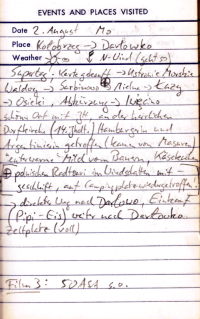 EVENTS AND PLACES VISITED
Date 2. August Mo
Place Kolobrzeg → Darlowko
Weather N-Wind (geht so)
Supertag: Karte gekauft → Ustronie Morskie
→ Sarbinowo Mielno → Łazy
→ Osieki, Abkürzung →
schönen Ort mit an der herrlichen
Dorfkirche (14. Jhdt.) Hamburgerin und
Argentinierin getroffen (kamen von Masuren)
unterwegs Milch vom Bauern, Käsekuchen
polnischen Radfahrer im Windschatten mit-
geschleift, auf Campingplatz wiedergetroffen
→ direkter Weg nach Darlowo, Einkauf
(Pipi-Eis) weiter nach Darlowko
Zeltplatz (voll)
Film 3: 50ASA s.o.